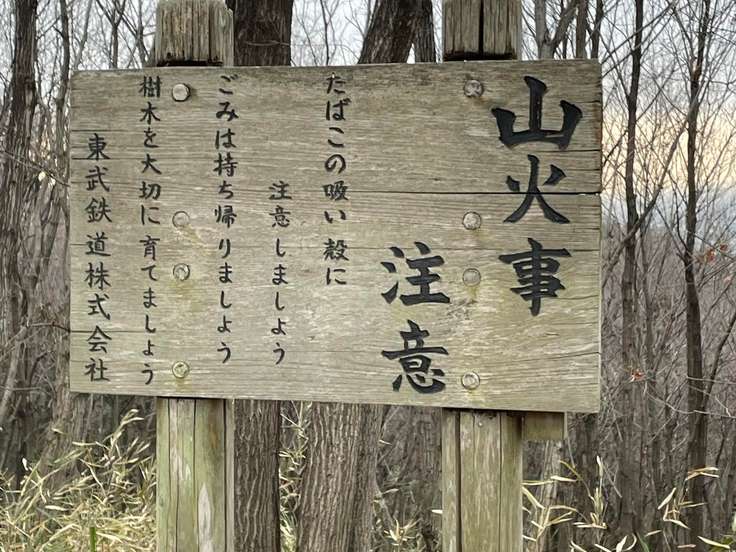 山火事
注意
たばこの吸い殻に
注意しましよう
ごみは持ち帰りましよう
樹木を大切に育てましよう
東武鉄道株式会社